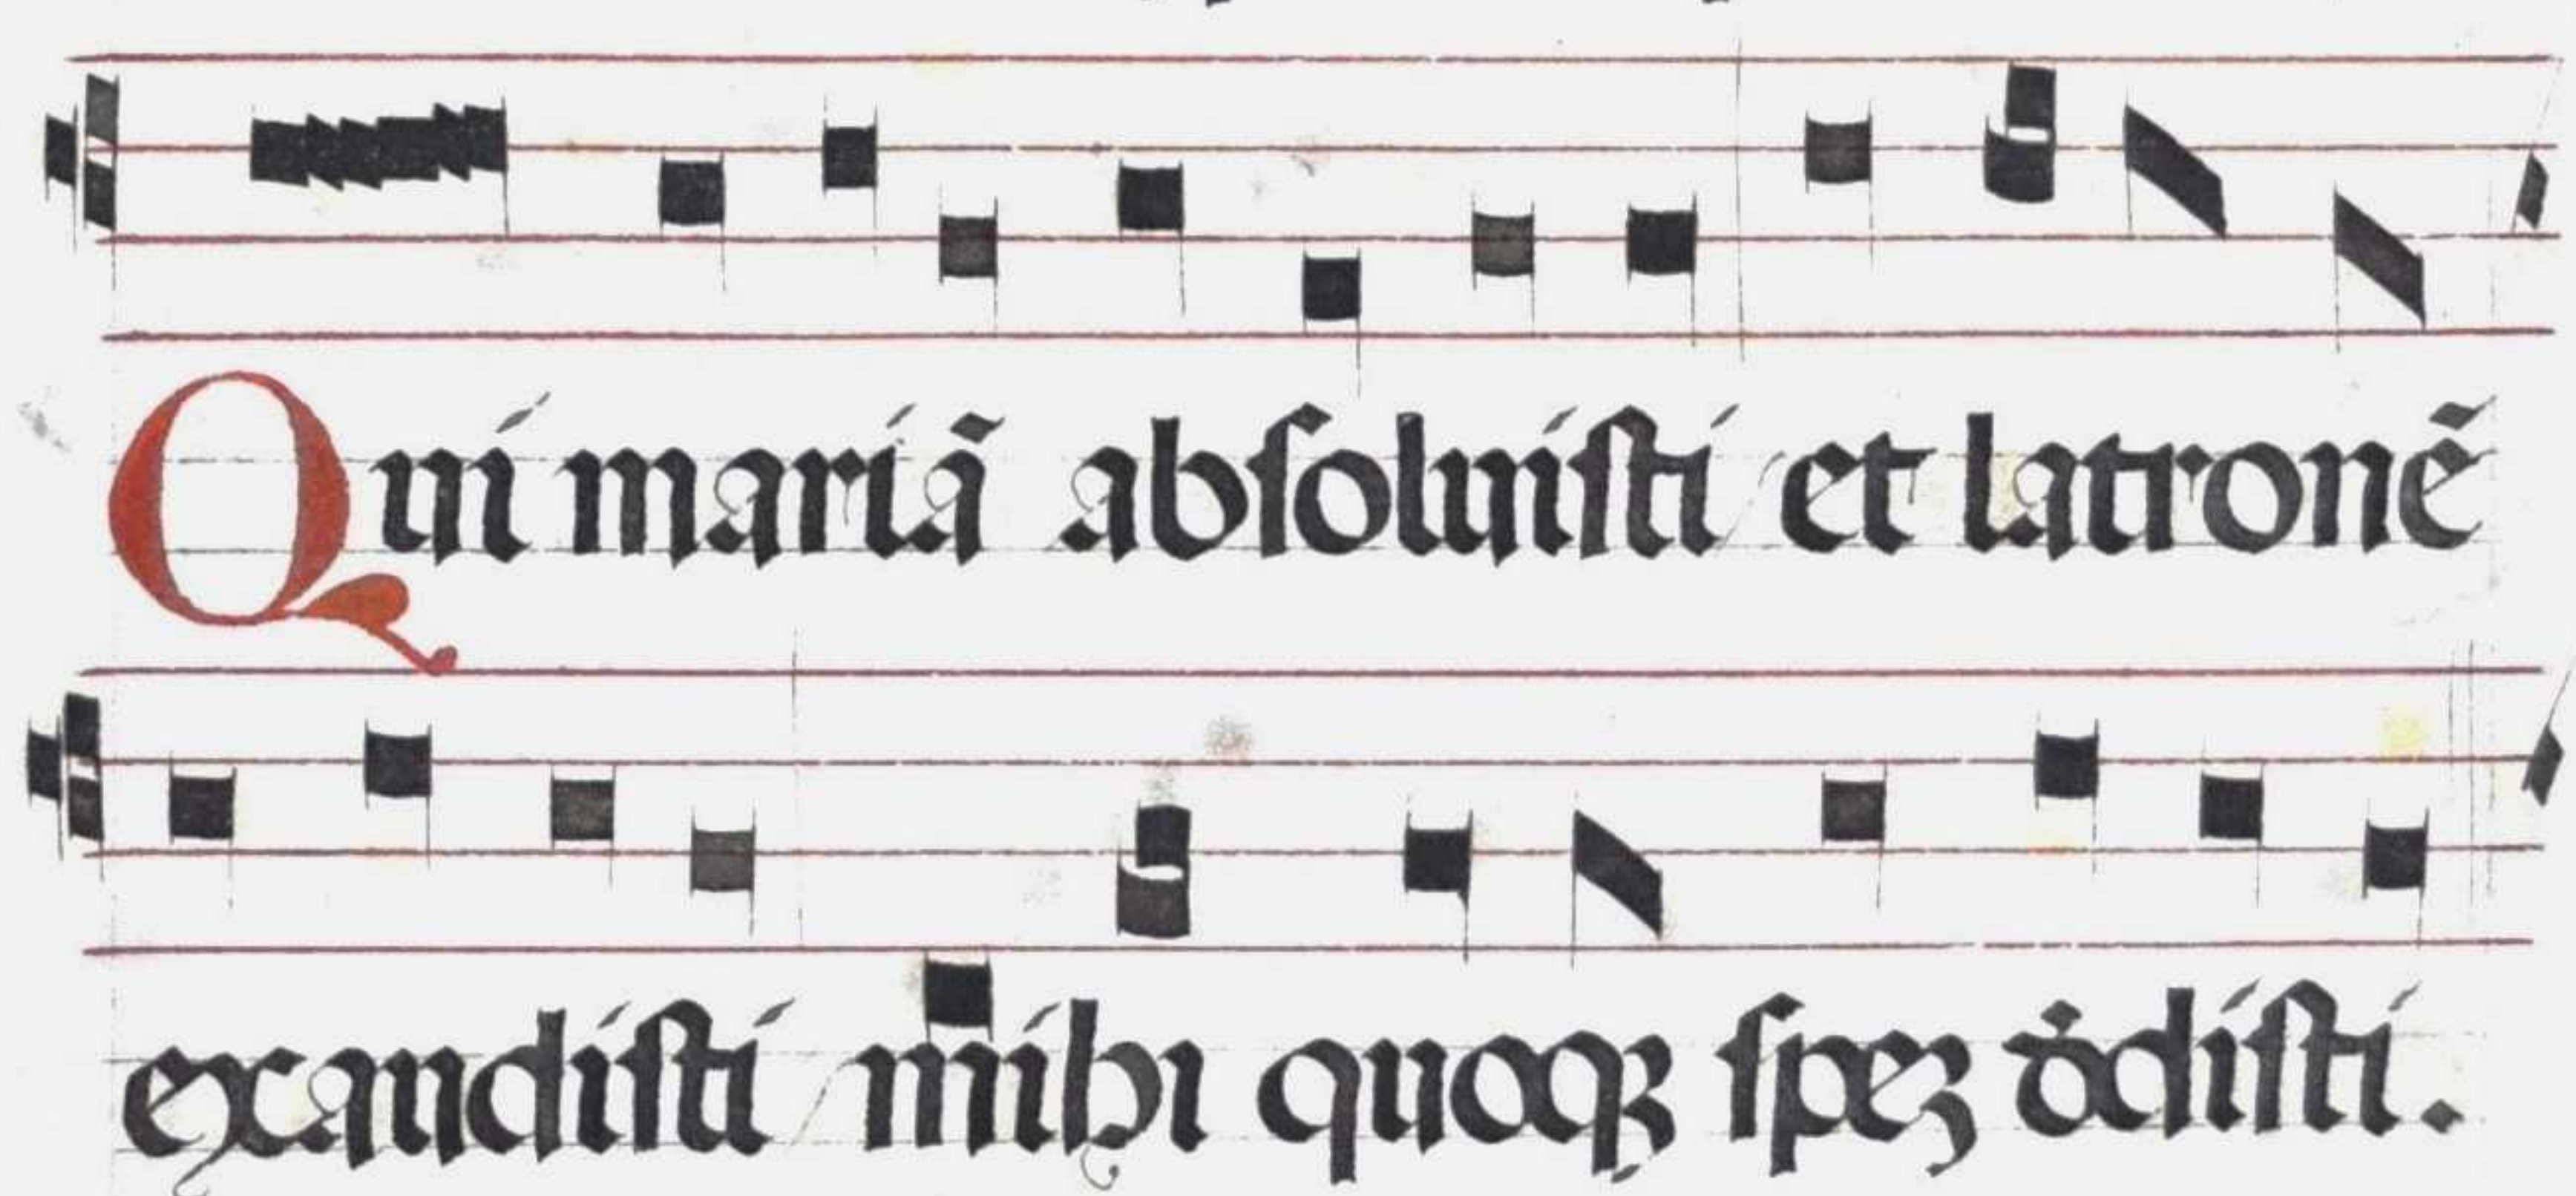 Qui mariã absoluisti et latronẽ
exaudisti mihi quoqꝫ speꝫ dedisti.